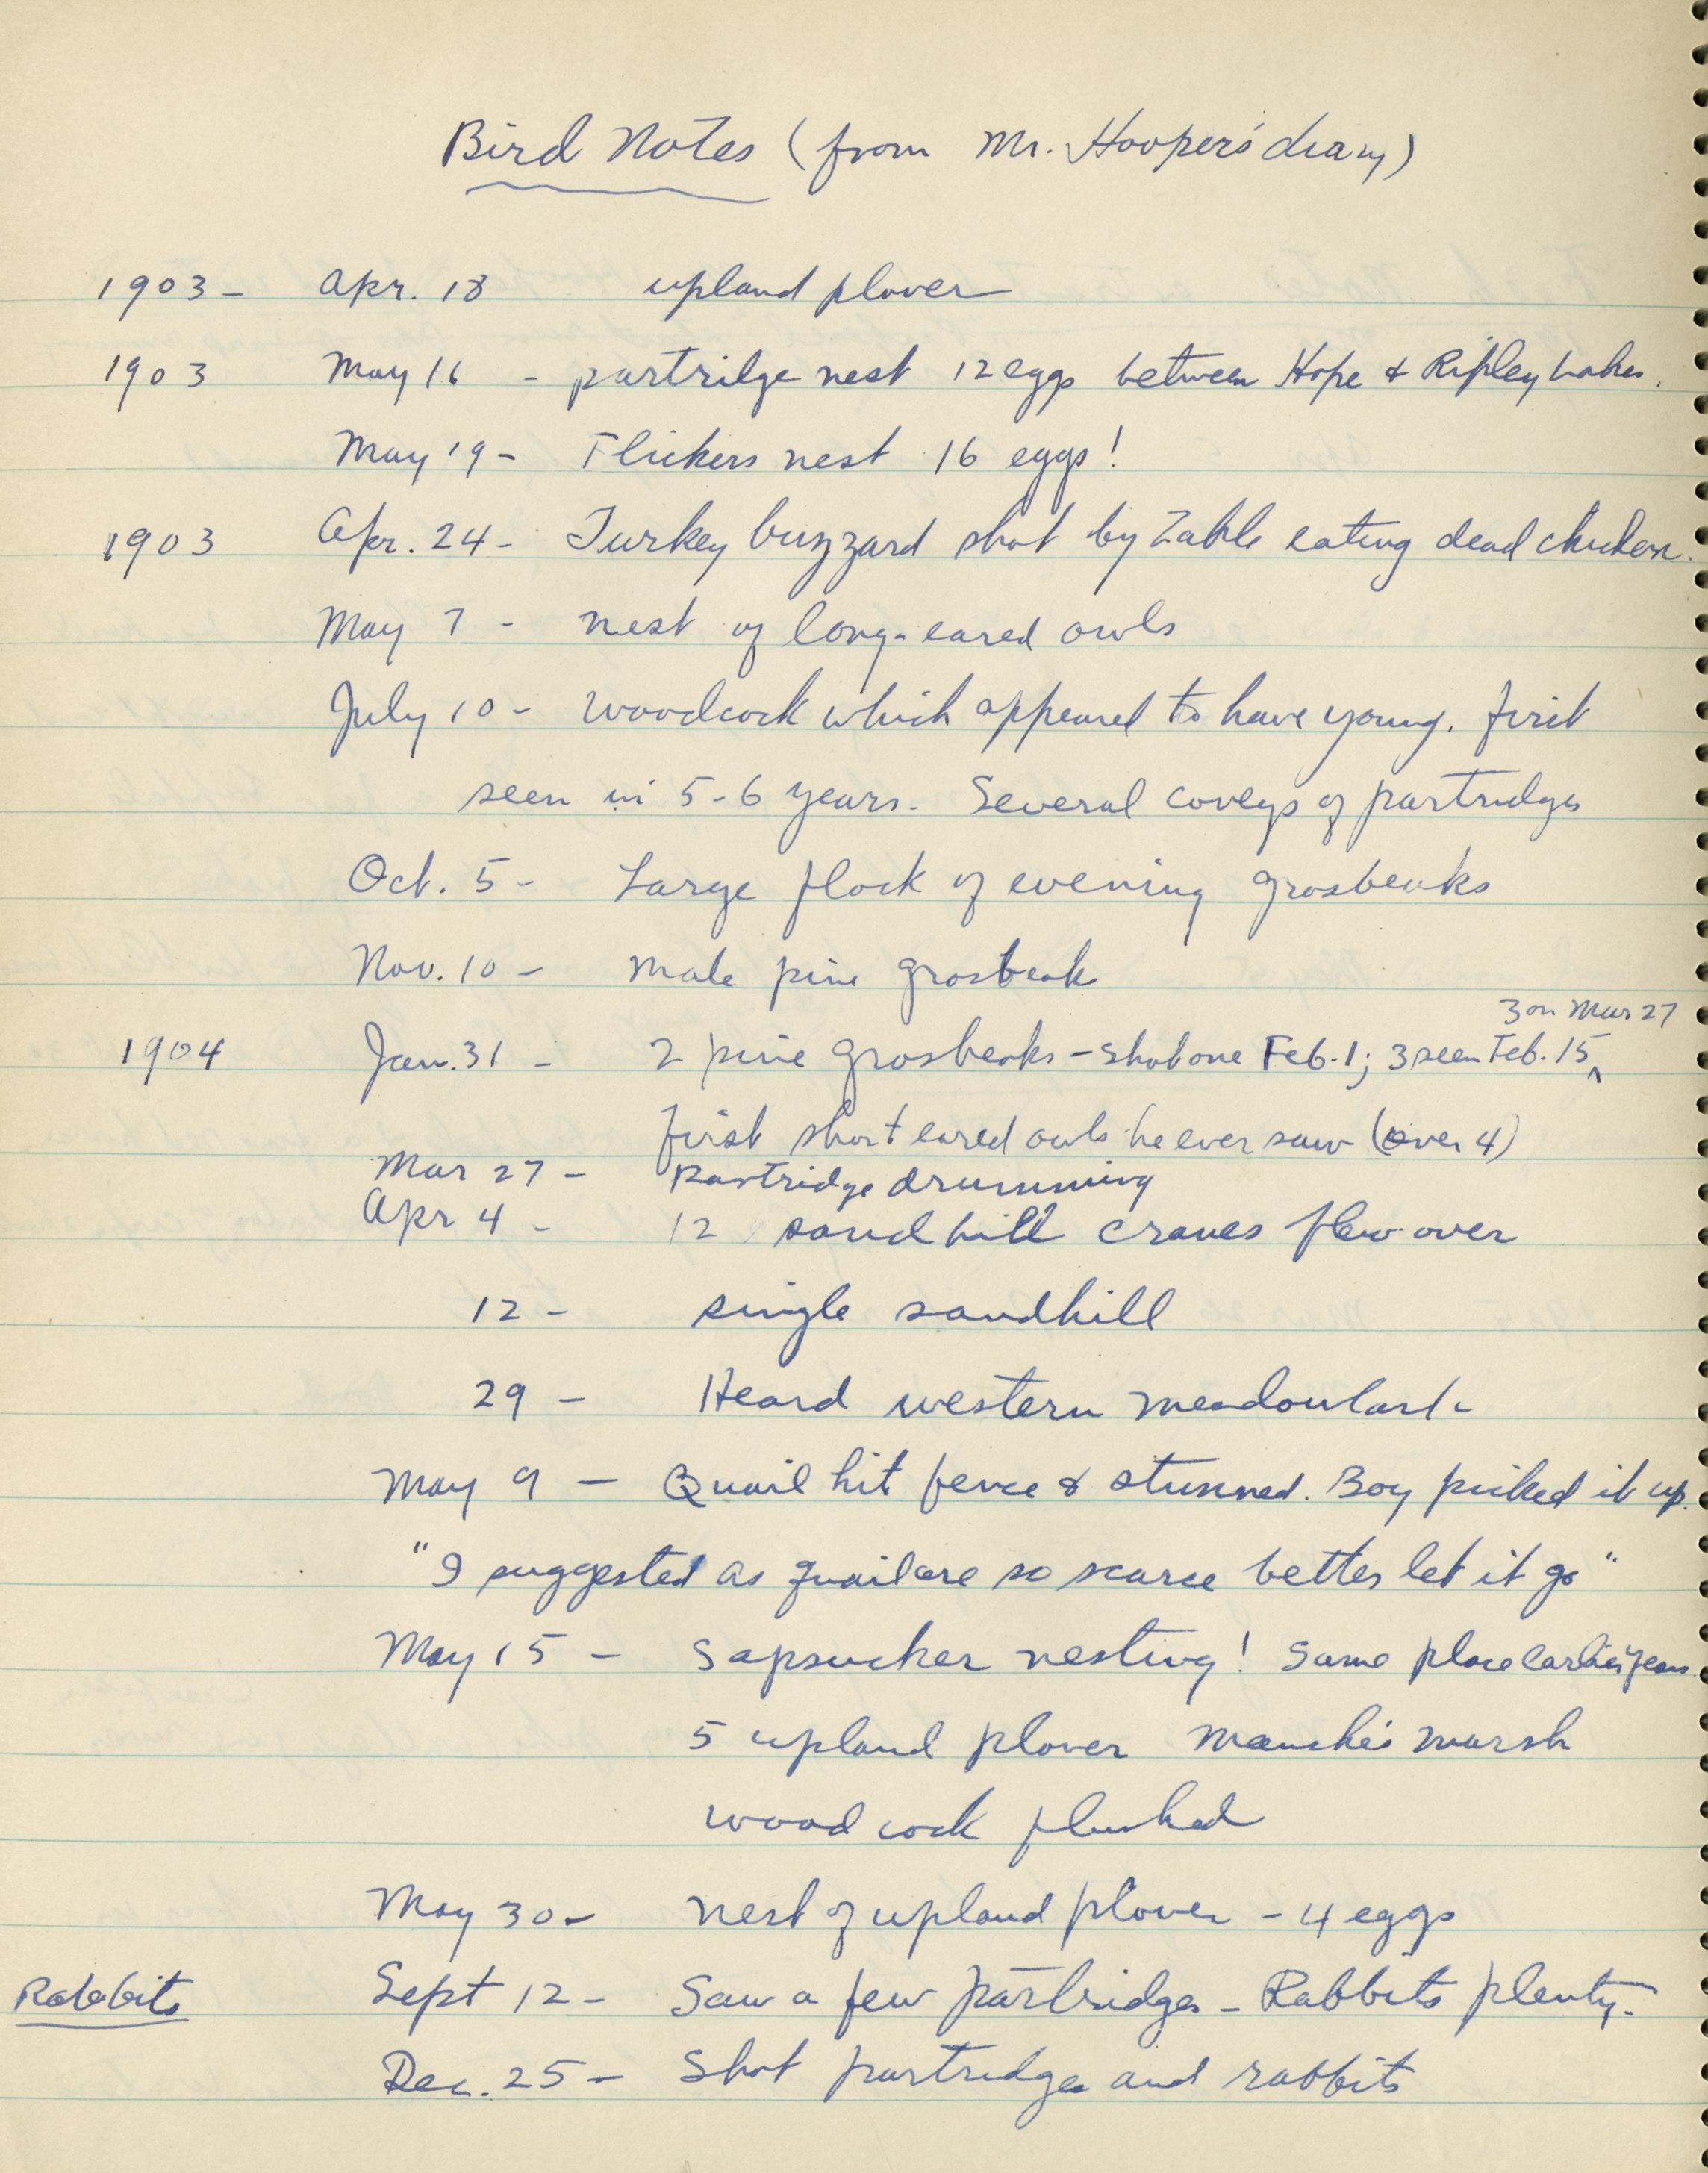 Bird Notes (from Mr. Hooper's diary)
1903 - Apr. 18 upland plover
1903 May 16 - partridge nest 12 eggs between Hope & Ripley Lakes.
May 19 - Flickers nest 16 eggs!
1903 Apr. 24 - Turkey buzzard shot by eating dead chicken.
May 7 - nest of long-eared owls
July 10 - woodcock which appeared to have young. First
seen in 5-6 years. Several coveys of partridges
Oct. 5 - Large flock of evening grosbeaks
Nov. 10 - male pine grosbeak
3 on Mar 27
1904 Jan. 31 - 2 pine grosbeaks - shot one Feb. 1; 3 seen Feb. 15 ^
First short eared owls he ever saw (over 4)
Mar 27 - Partridge drumming
Apr 4 - 12 sandhill cranes flew over
12 - single sandhill
29 - Heard western meadowlark
May 9 - Quail hit fence & stunned. Boy picked it up.
"I suggested as quail are so scarce better let it go"
May 15 - Sapsucker nesting! Same place earlier years.
5 upland plover marsh
woodcock flushed
May 30 - nest of upland plover - 4 eggs
Rabbits Sept 12 - Saw a few partridges - Rabbits plenty.
Dec. 25 - Shot partridges and rabbits